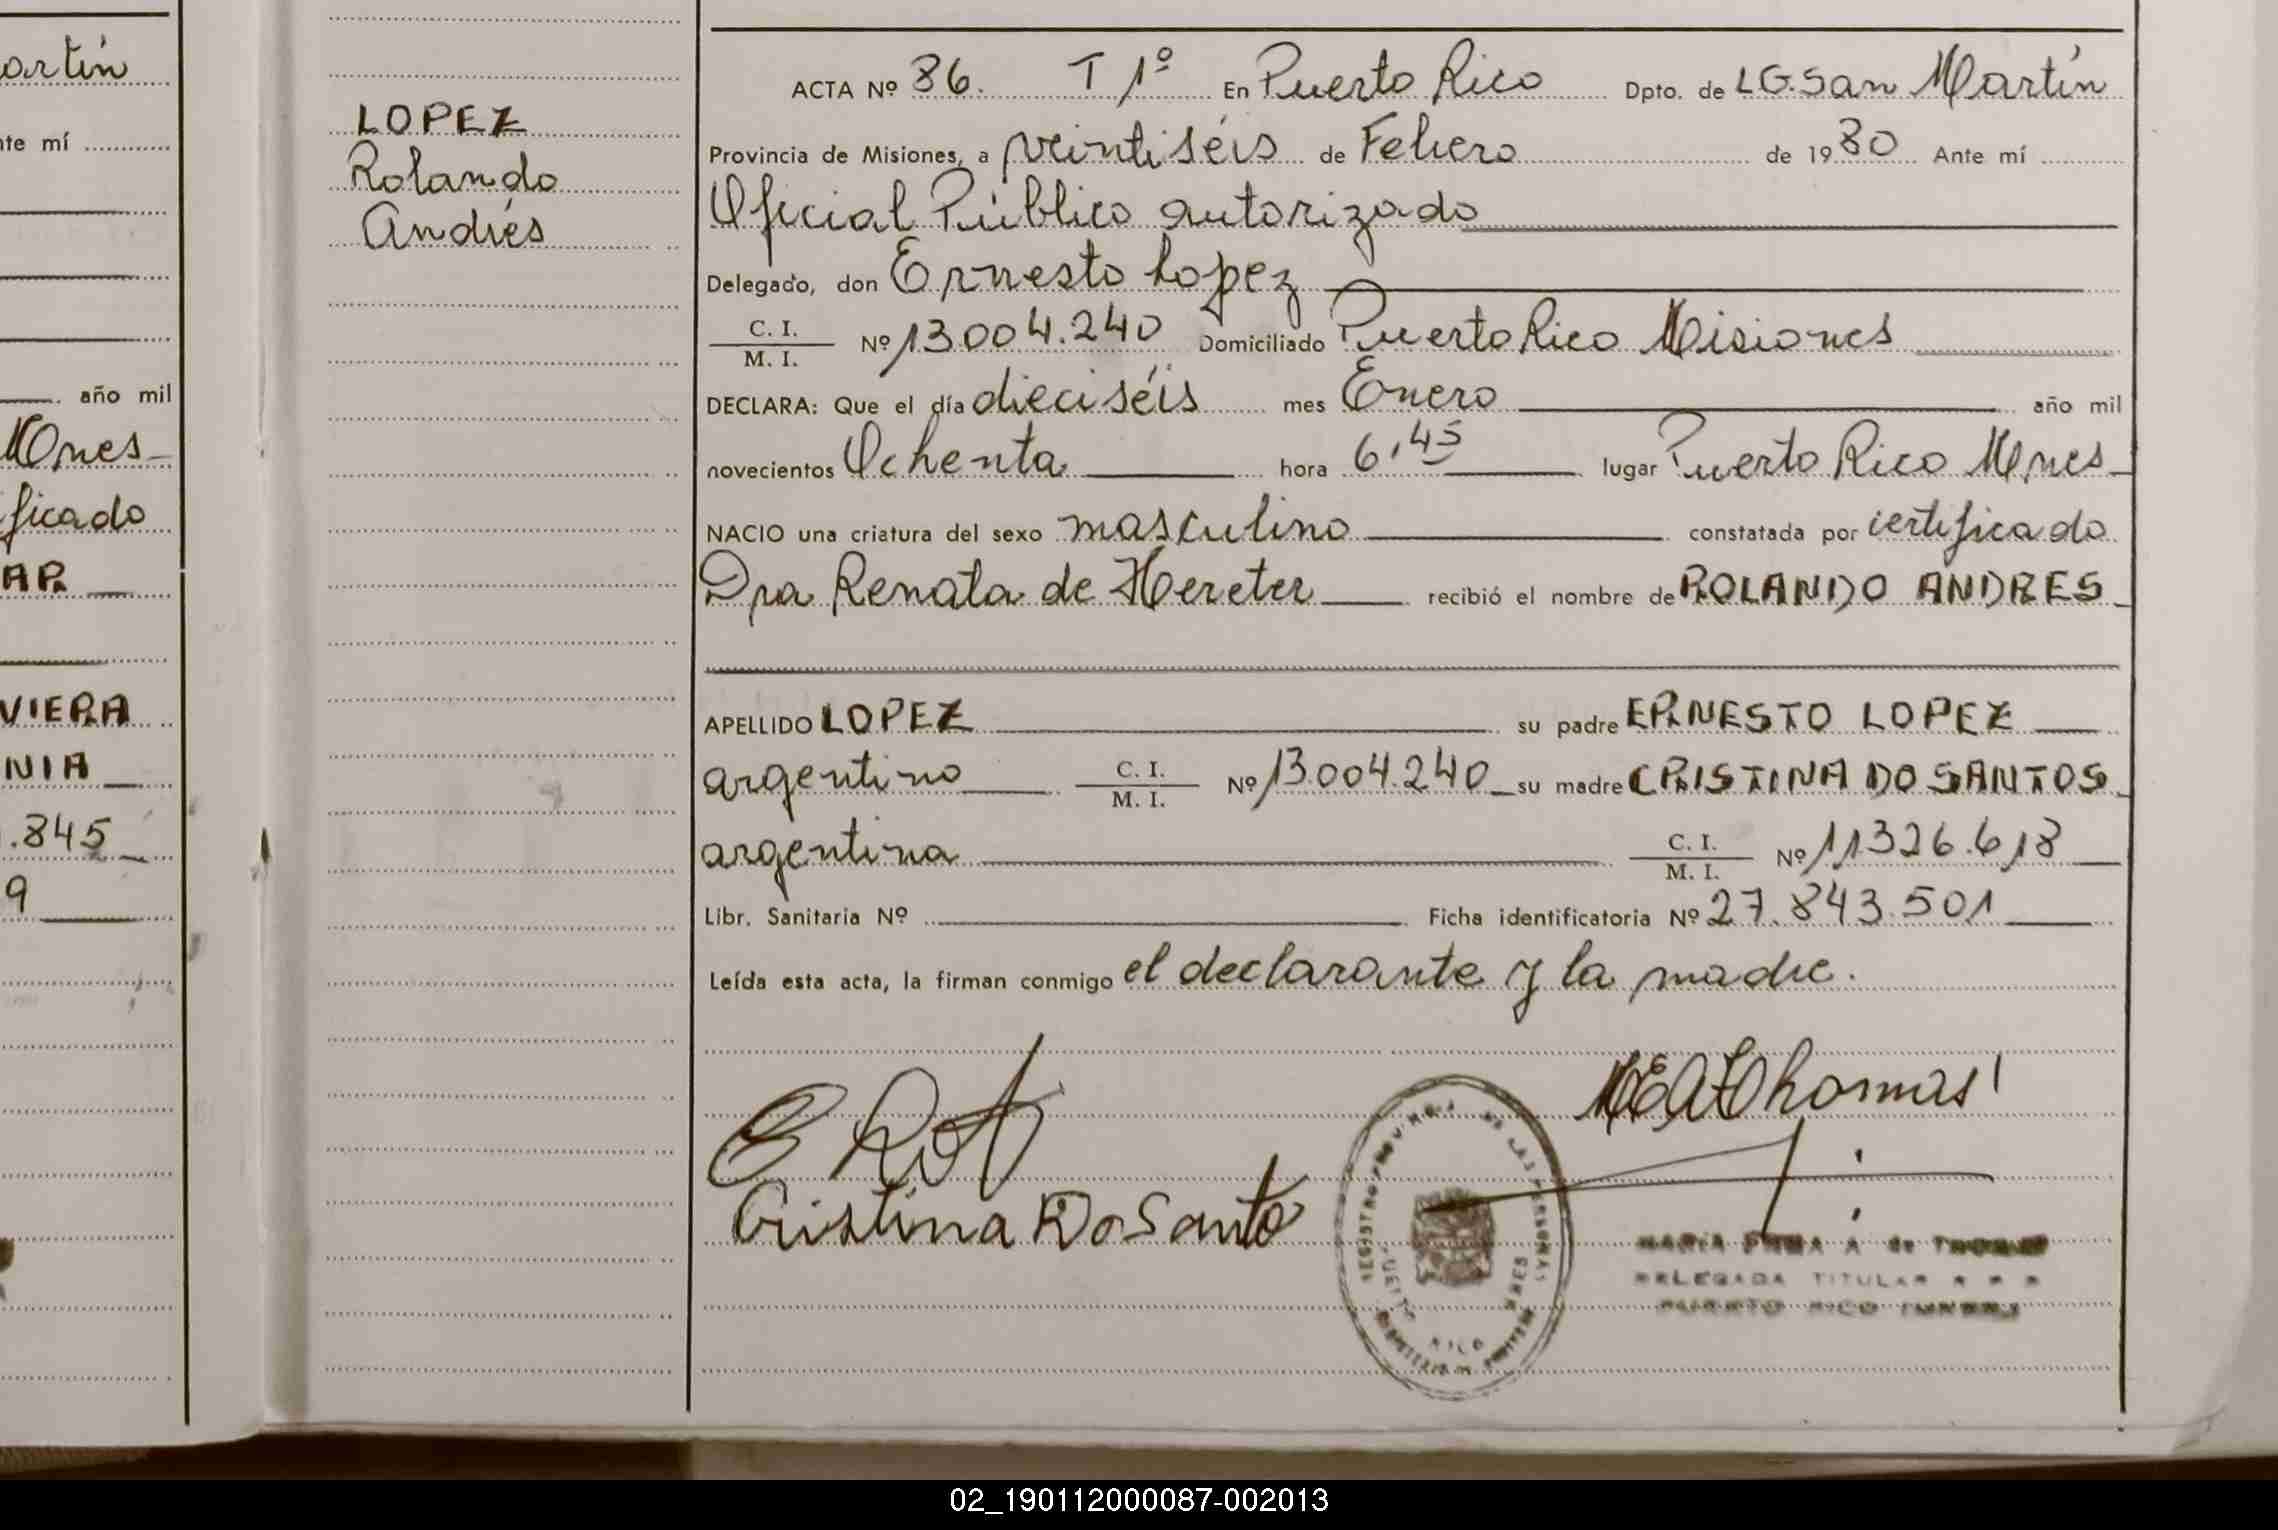 artín
nte mí
año mil
Mnes
ficado
AR
VIERA
NIA
.845
9
LOPEZ
Rolando
Andrés
ACTA Nº 86. T 1º En Puerto Rico Dpto. de L.G.San Martín
Provincia de Misiones, a veintiséis de Febrero de 1980 Ante mí
Oficial Público autorizado
Delegado, don Ernesto Lopez
C. I.
M. I. Nº 13.004.240 Domiciliado Puerto Rico Misiones
DECLARA: Que el día dieciséis mes Enero año mil
novecientos Ochenta hora 6,45 lugar Puerto Rico Mnes
NACIO una criatura del sexo masculino constatada por certificado
Dra Renata de Hereter recibió el nombre de ROLANDO ANDRES
APELLIDO LOPEZ su padre ERNESTO LOPEZ
argentino C. I.
M. I. Nº 13.004.240 su madre CRISTINA DO SANTOS
argentina C. I.
M. I. Nº 11326.618
Libr. Sanitaria Nº Ficha identificatoria Nº 27.843.501
Leída esta acta, la firman conmigo el declarante y la madre.
Cristina Do Santo
MEAThomas
REGISTRO PROVINCIAL DE LAS PERSONAS
MARIA A de THOMAS
DELEGADA TITULAR
PUERTO RICO
02_190112000087-002013